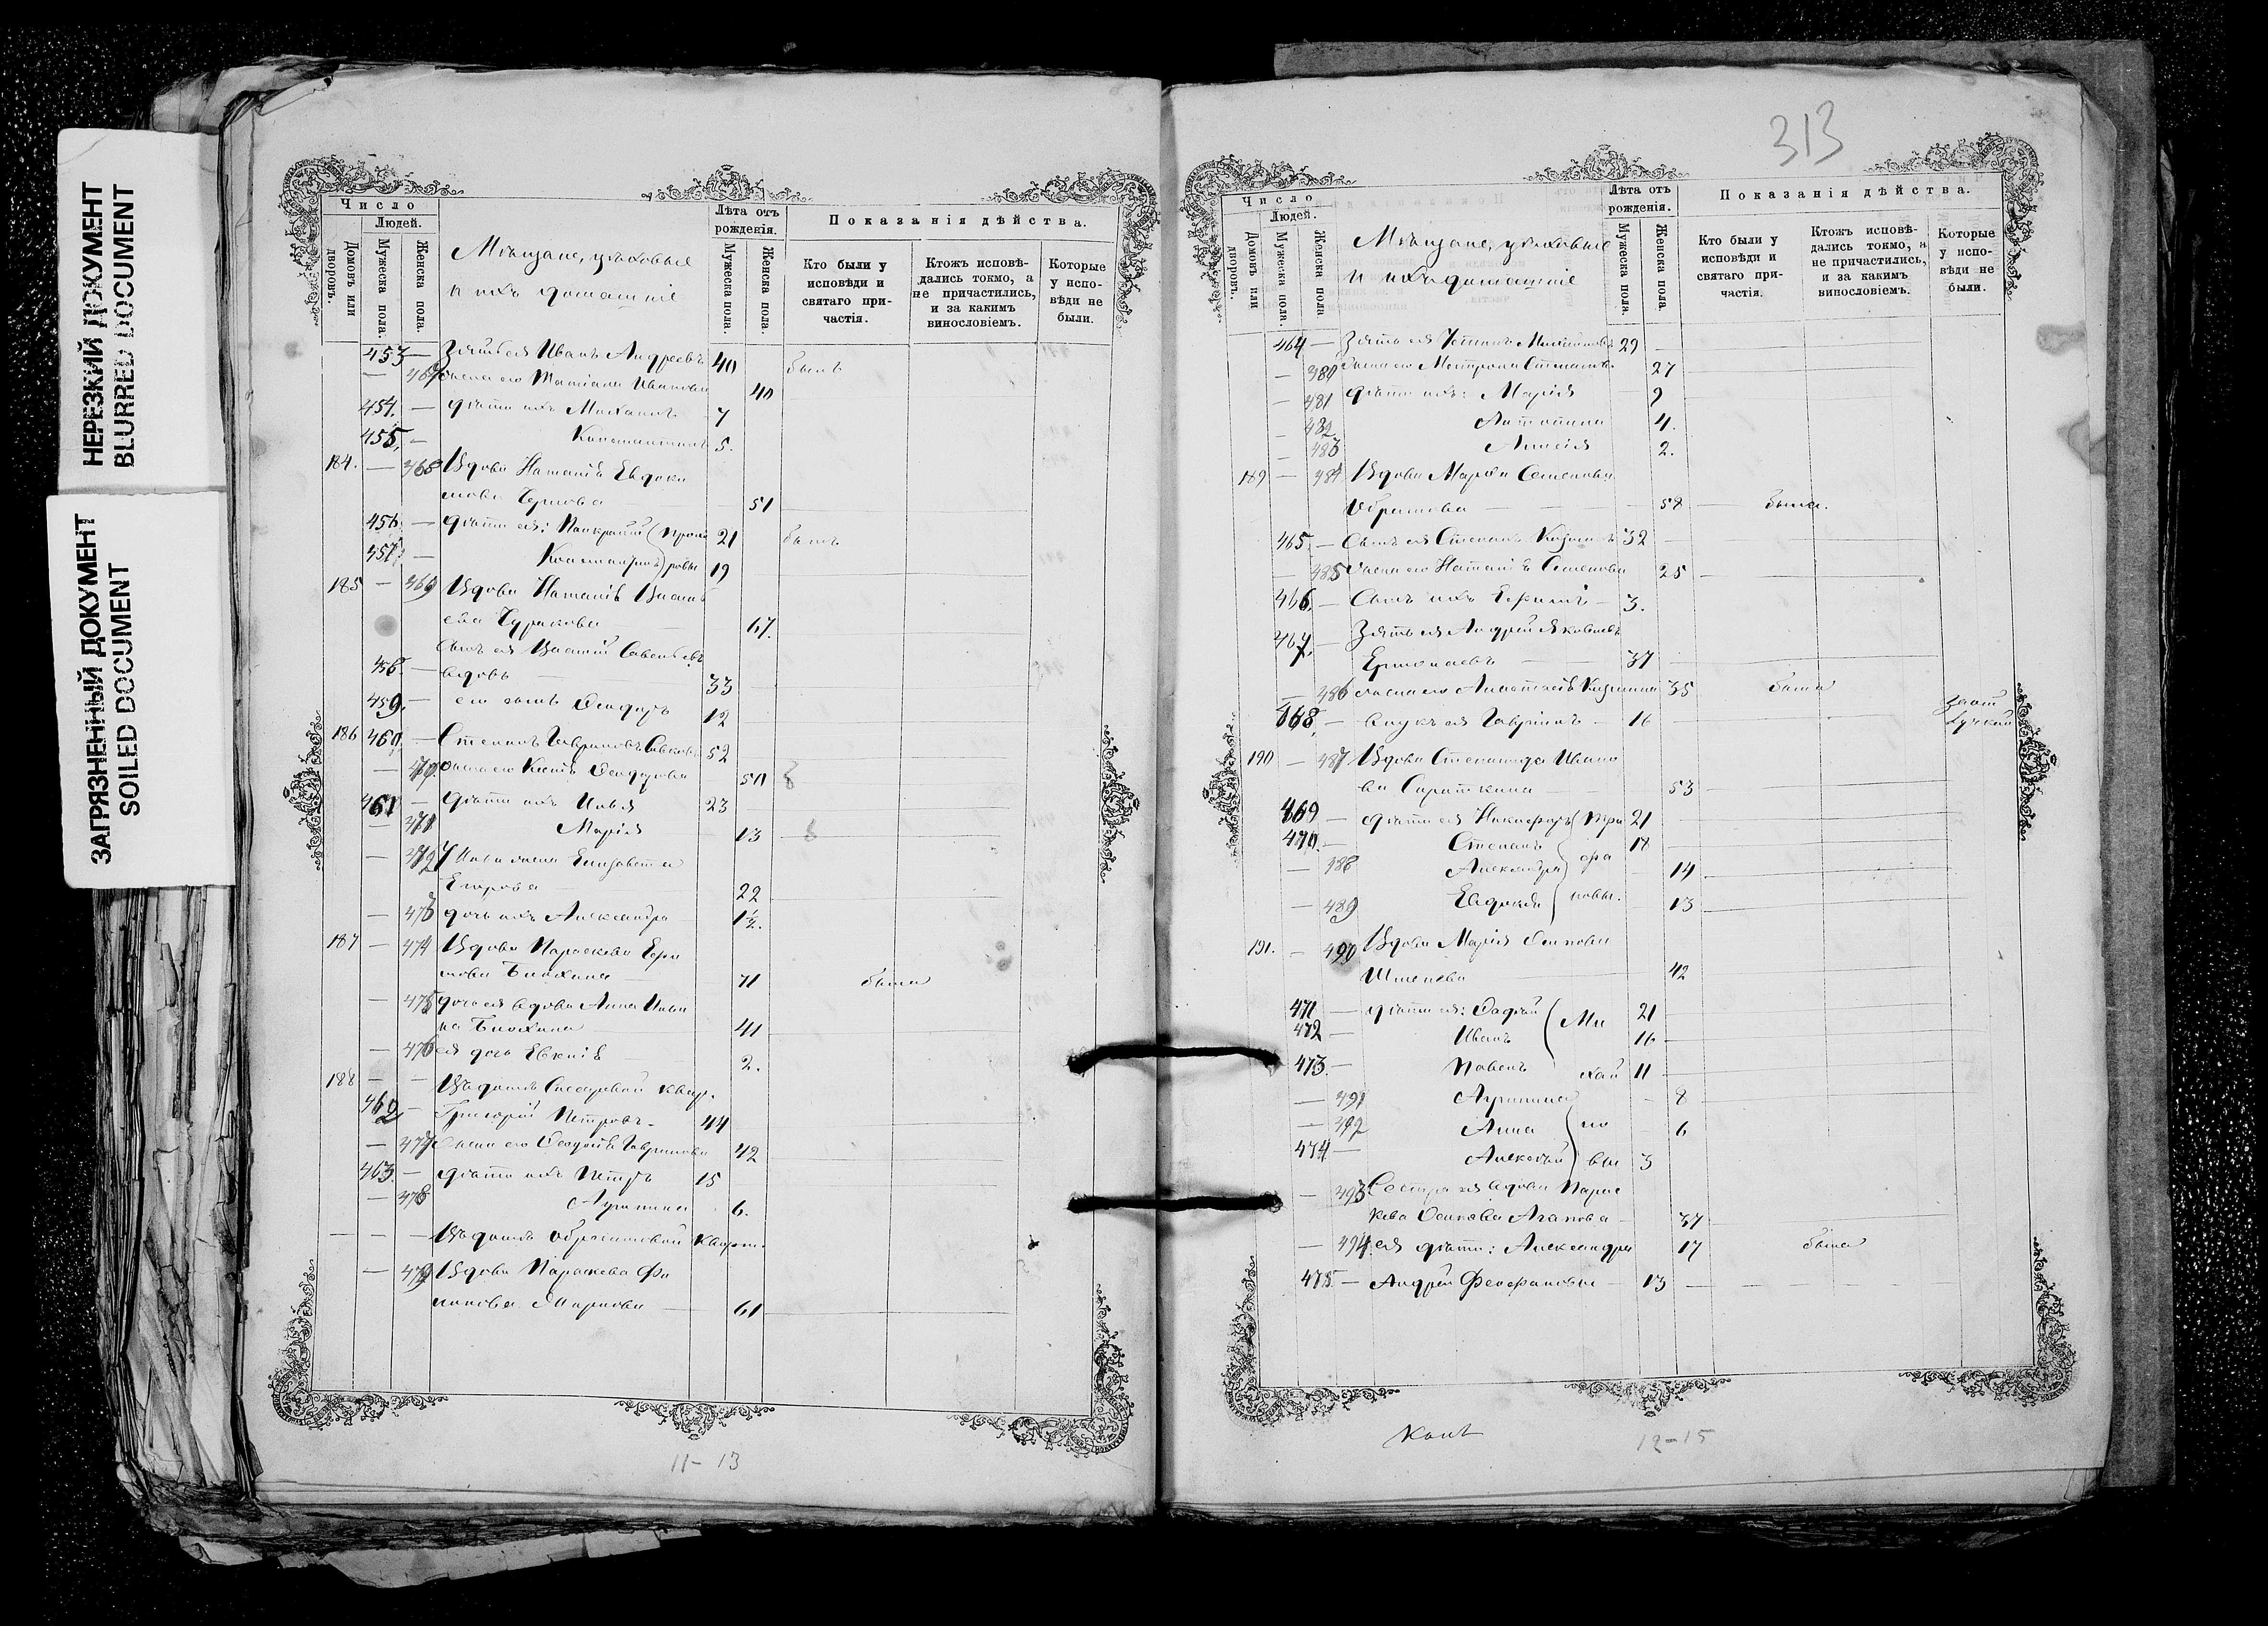 НЕРЕЗКИЙ ДОКУМЕНТ
BLURRED DOCUMENT
ЗАГРЯЗНЕННЫЙ ДОКУМЕНТ
SOILED DOCUMENT
Число
Людей.
Домовъ или дворовъ.
Мужеска пола.
Женска пола.
Мѣщане, цѣховые
и ихъ домашніе
Лѣта отъ рожденія.
Мужеска пола.
Женска пола.
Показанія дѣйства.
Кто были у исповѣди и святаго причастія.
Ктожъ исповѣдались токмо, а не причастились, и за какимъ винословіемъ.
Которые у исповѣди не были.
453 — Зять ея Иванъ Андреевъ 40 былъ
— 467 жена его Татіана Иванова 40
454. — дѣти ихъ Михаилъ 7
455. — Константинъ 5.
184. — 468 Вдова Наталія Евдоки
мова 51
456. — дѣти ея: Панкратій 21 былъ
457. — 19
185 — 469 Вдова Наталія Василь
ева 67.
Сынъ ея Василій Савельевъ
458. — вдовъ 33
459. — его сынъ Ѳеодоръ 12
186 460. — Степанъ Гавриловъ 52
— 470 жена его Ѳеодорова 50 б
461 — дѣти ихъ Илья 23
— 471 Марія 13 б
— 472 У Ильи жена Елизавета
Егорова 22
— 473 дочь ихъ Александра 1½.
187 — 474 Вдова Параскева Ефи
мова Блохина 71 была
— 475 дочь ея вдова Анна Ильи
на Блохина 41
— 476 ея дочь Евгенія 2.
188 — — Въ домѣ Слесаревой кварт.
462 — Григорій Петровъ 44
— 477 жена его Ѳеодосія Гаврилова 42
463. — дѣти ихъ Петръ 15
— 478 Агрипина 6.
— — — Въ домѣ Образцовой кварт.
— 479 Вдова Параскева Фи
липова Миронова 61
11-13
313
Число
Людей.
Домовъ или дворовъ.
Мужеска пола.
Женска пола.
Мѣщане, цѣховые
и ихъ домашніе
Лѣта отъ рожденія.
Мужеска пола.
Женска пола.
Показанія дѣйства.
Кто были у исповѣди и святаго причастія.
Ктожъ исповѣдались токмо, а не причастились, и за какимъ винословіемъ.
Которые у исповѣди не были.
464 — Зять ея 29
— 480 жена его Матрона Степанова 27
— 481 дѣти ихъ: Марія 9
— 482 Антонина 4.
— 483 Анисія 2.
189 — 484 Вдова Марѳа Семенова
58 была.
465. — Сынъ ея Степанъ Козьминъ 32
— 485 жена его Наталія Семенова 25
466. — Сынъ ихъ Ефимъ 3.
467. — Зять ея Андрей Яковлевъ
Ермолаевъ 37
— 486 жена его Анастасія Козьмина 35 была
468. — внукъ ея Гавріилъ 16
190 — 487 Вдова Степанида Ивано
ва Сироткина 53
469 — дѣти ея Никифоръ Три 21
470. — Степанъ 18
— 488 Александра фо 14
— 489 Евдокія новы. 13
191. — 490 Вдова Марія Осипова
42
471 — дѣти ея: 21
472 — Иванъ Ми 16
473. — Павелъ хай 11
— 491 Агрипина 8
— 492 Анна ло 6
474 — Алексѣй вы 3
— 493. Сестра ея вдова Парас
кева Осипова Агапова 37
— 494 ея дѣти: Александра 17 была
475. — Андрей Феофановы 13
12-15